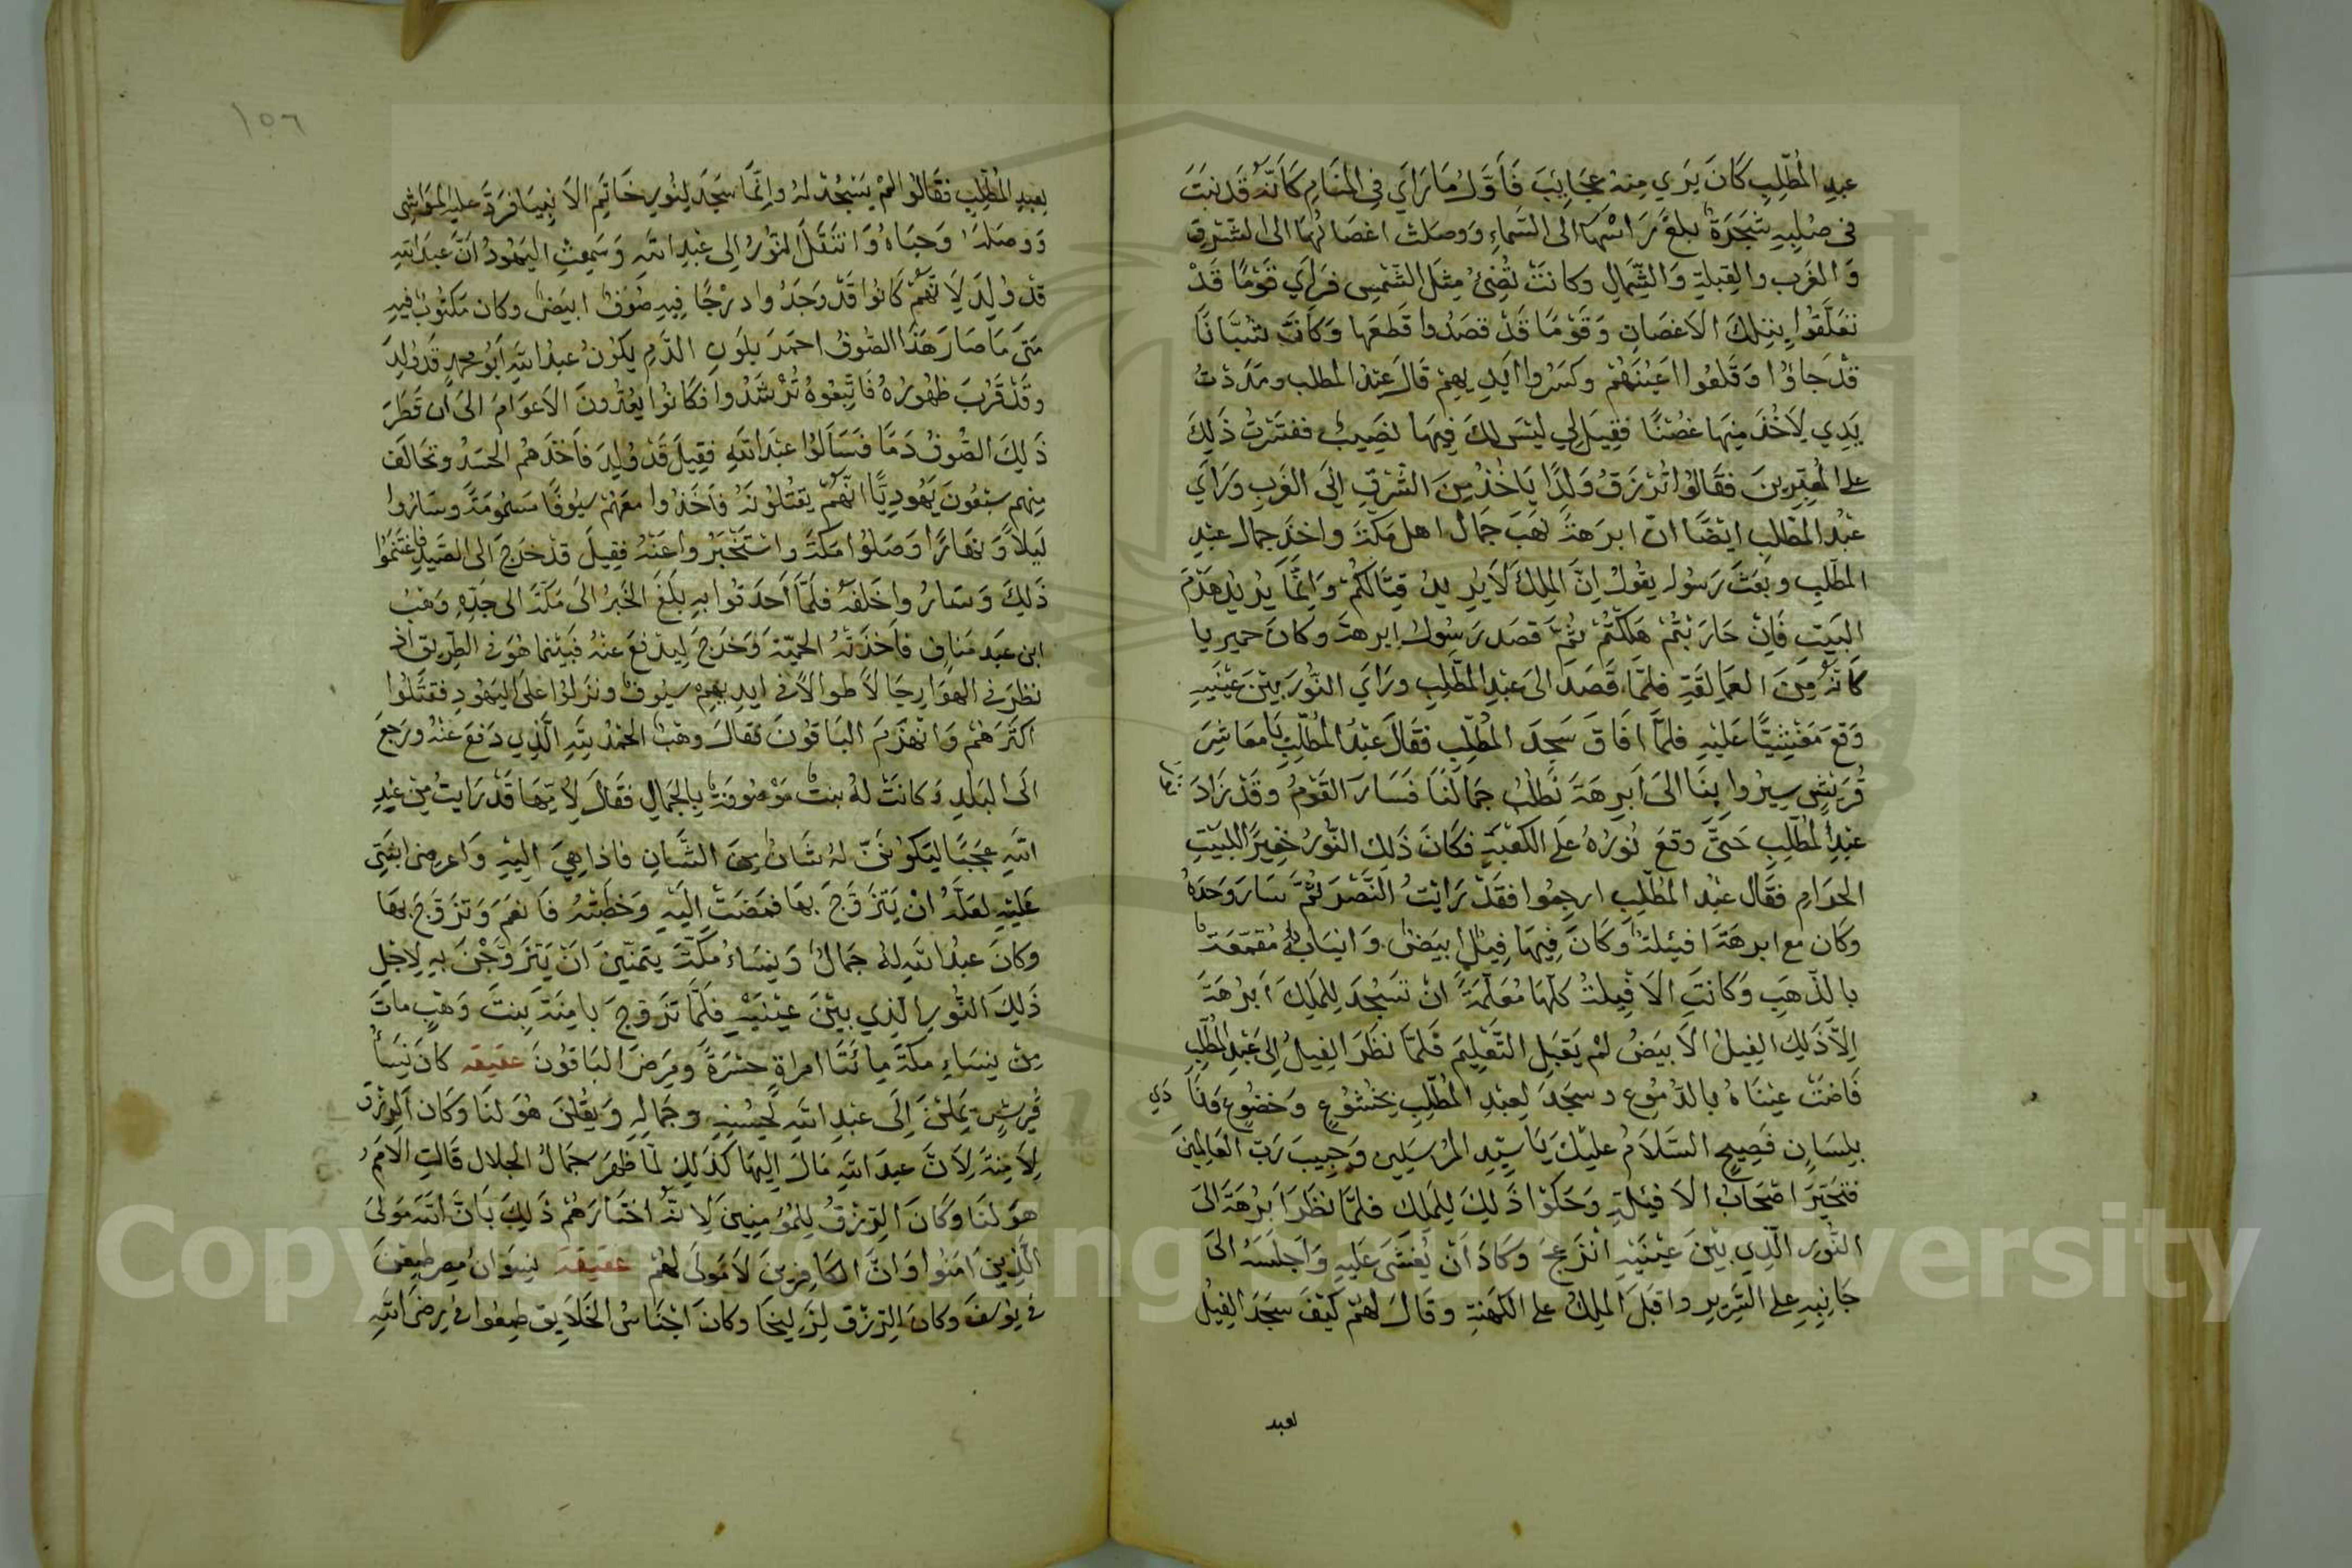 عبدِ المُطّلِبِ كَانَ يَرَي مِنهُ عجَايِبَ فَاَوَّلُ مَا رَاَي فِي المَنَامِ كَاَنَّهُ قَد نَبَتَ
في صُلبِهِ شجَرَةٌ بلغَ رَاسُهَا الى السَّماءِ وَوصَلت اغصَانُهَا الى الشرق
وَالغَرب والقِبلةِ وَالشّمالِ وكانَتْ تُضِئُ مِثلَ الشَّمسِ فرَاَي قَومًا قَدْ
تعَلّقُوا بتِلكَ الاَغصَانِ وَقَوْمًا قَدْ قصَدُوا قَطعَها وَكَاَنَّ شُبَّانًا
قدْ جَاؤُا وَقَلعُوا اعيُنَهُمْ وكسَرُوا اَيدِيهِمْ قَالَ عَبْدُ المطلب ومَدَدْتُ
يَدِي لِاَخُذَ مِنهَا غصْنًا فقِيلَ لِي ليْسَ لكَ فِيهَا نَصِيبٌ ففسَرْتُ ذَلِكَ
على المُعَبِّرِينَ فقَالوُا تُرْزَقُ وَلدًا يَاخُذُ مِنَ الشَّرقِ اِلَى الغَرب وَرَاَي
عبْدُ المطّلبِ ايْضًا انّ ابرَهةَ نهَبَ جمَالَ اهل مَكّةَ واخَذَ جمال عبْدِ
المطّلِبِ وبَعَثَ رَسُولَه يقُولُ اِنَّ المِلكَ لاَ يُرِيدُ قِتَالَكُمْ وَاِنَّمَا يُرِيدُ هَدْمَ
البَيتِ فَاِنْ حَارَبْتُمْ هَلَكتُمْ ثُمَّ قصَدَ رَسُولُ ابرهة وكانَ حميريا
كَاَنّهُ مِنَ العمَالِقَةِ فلمَّا قَصَدَ الىَ عَبْدِ المطّلِبِ ورَاَي النّورَ بيْنَ عيْنَيهِ
وَقعَ مَغْشِيًّا عَلَيْهِ فلمَّا افَاقَ سَجدَ المُطّلِبِ فقَالَ عَبْدُ المُطّلِبِ يَا معَاشِرَ
قُرَيْشٍ سِيرُوا بِنَا الىَ اَبرهَةَ نَطْلُبُ جمَالَنَا فَسَارَ القَوْمُ وَقَدْ زَادَ
عبْدِ المُطّلِبِ حَتَّى وقعَ نُورُهُ عَلَى الكعْبَةِ فكَانَ ذَلِكَ النُّورُ خفِيرًا لِلبَيْتِ
الحَرَامِ فقَال عبْدُ المطّلبِ ارجِعُوا فقَدْ رَايْتُ النَّصْرَ ثُمَّ سَارَ وَحدَهُ
وكَان مع ابرهَةَ افيلَةٌ وَكَانَ فِيهَا فيلٌ ابيَضُ وَانيَابُهُ مُقمّعَةٌ
بالذّهَبِ وَكَانَتِ الاَفيِلةُ كلّهَا مُعَلّمَةً انْ تسَجُدَ لِلمَلِكَ اَبرَهَةَ
اِلاّ ذَلِكَ الفِيلُ الاَبيَضُ لمْ يَقبَل التَّعْلِيمَ فَلمّا نَظَرَ الفِيلُ اِلى عَبْدِ المُطّلِبِ
فَاضَتْ عيْنَاهُ بالدّمُوع وسجَدَ لِعبْدِ المُطّلِبِ بخُشُوعٍ وَخضُوع وَنَا دَي
بِلسَانٍ فَصِيحٍ السَّلاَمُ عليْكَ يَا سَيّدِ المُرْسَلِين وَحبِيبَ رَبِّ العَالمِينَ
فتحَيَّرَ اصْحَابُ الاَفيَلَةِ وَحَكَوْا ذَلِكَ لِلمَلك فلمَّا نظَرَ اَبْرهَةَ الىَ
النُّورَ الّذِي بَيْنَ عيْنَيْهِ انْزَعجَ وَكادَ اَنْ يُغشَى عَليهِ وَاَجلَسَهُ الىَ
جَانِبِهِ على السَّرِيرِ واقبَلَ المَلِكُ على الكهَنةِ وقَالَ لهُمْ كيْفَ سجَدَ الفِيلُ
لعبد
١٥٦
لِعبدِ المُطّلِبِ فقَالوُا لمْ يَسْجُدْ لهُ وانّمَا سَجَدَ لِنُورِ خَاتِمِ الاَنبِيَا فرَدَّ عليْهِ المَوَاشِي
وَوصَلهُ وَحبَاهُ وَانتَقَلَ النّورُ اِلى عبْدِ اللهِ وَسَمِعتِ اليهُودُ انّ عبدَ اللهِ
قدْ وُلِدَ لِاَنّهُمْ كَانوُا قَدْ وَجَدُوا دُرْجًا فِيهِ صُوفٌ ابيَضُ وكان مَكتُوبٌ فيهِ
مَتَى مَا صَارَ هَذَا الصُّوفُ احمَرَ بلَونِ الدَّمِ يكوُنُ عبدُ اللهِ اَبوُ محمدٍ قَد وُلِدَ
وقَدْ قَرُبَ ظهُورُهُ فَاتّبِعُوهُ تُرْشَدُوا فكَانُوا يعُدُّونَ الاَعوَامَ الىَ ان قَطَرَ
ذَلِكَ الصُّوفُ دَمًا فَسَاَلوُا عبْدَ اللهِ فقِيلَ قَدْ وُلِدَ فاَخذَهُم الحسَدُ وتحَالَفَ
مِنهم سبْعُونَ يَهُودِيًّا انّهُمْ يَقتُلوُنَهُ فاَخَذُوا معَهُمْ سيُوفًا مسْمُومَةً وسَارُوا
لَيلاً وَنهَارًا وَصَلوُا مَكةَ واسْتخْبَرُوا عَنْهُ فقِيلَ قدْ خرَجَ الى الصَّيدِ فاغتَنَمُوا
ذَلِكَ وَسَارُوا خَلفَهُ فلَمّا اَحدَقُوا بهِ بَلَغَ الخَبرُ الىَ مَكةَ الى جَدّهِ وَهبُ
ابن عَبدِ مَنَاف فاَخذَتهُ الحمِيّةَ وَخرَجَ لِيدْفعَ عنْهُ فبَيْنما هوَ في الطّرِيق اذ
نظرَ في الهوَا رِجَالاً طوالاً في ايدِيهِم سيُوفٌ ونزَلوُا على اليَهُودِ فقتَلوُا
اكثَرَهُمْ وَانْهَزَمَ البَاقُونَ فقالَ وهْبٌ الحمْدُ للهِ الّذِي دَفعَ عَنْهُ ورَجَعَ
الىَ البَلدِ وَكانَتْ لهُ بنتٌ مَوْصُوفةٌ بالجمَالِ فقَالَ لاُمّهَا قَدْ رَايتُ مِنْ عَبْدِ
اللهِ عجَبًا ليَكوُننّ لهُ شَانٌ مِنَ الشّانِ فاذهَبِي اليْهِ وَاعرِضي ابنَتِي
عَليْهِ لعَلّهُ انْ يَتَزَوّجَ بهَا فمَضَتْ الَيْهِ وَخطَبتْهُ فاَنعَمَ وَتزَوَّجَ بهَا
وكَانَ عبْدُ اللهِ لهُ جمَالٌ وَنِسَاءُ مَكّةَ يتَمنّينَ انْ يَتزَوّجْنَ بهِ لِاَجْلِ
ذَلِكَ النُّورِ الّذي بيْنَ عيْنَيْهِ فلَمّا تزَوّجَ بامِنَةَ بنتَ وَهْبٍ ماتَ
مِنْ نِسَاءِ مكةَ مِائَتَا امراةٍ حسْرَةً ومَرِضَ البَاقُونَ عقيقه كانَ نِسَاُ
قُريشٍ يمِلنَ اِلَى عَبْدِ اللهِ لحُسْنِهِ وجَمالِهِ وَيقُلنَ هُوَ لنَا وَكان الرِزْقُ
لِاَمِنةَ لاَنّ عبدَ اللهِ مَالَ اليهَا كذَلِكَ لمّا ظهَرَ جمَالُ الجلال قَالتِ الاُمَمُ
هوَ لنَا وكَانَ الرِّزْقُ لِلمُؤمِنِينَ لاَنّهُ اختَارَهُمْ ذَلِكَ بِاَنَّ اللهَ مَوْلىَ
الّذِينَ امَنُوا وَانّ الكَافِرِينَ لاَ مَوْلىَ لهُمْ عَقيقة نِسوَانُ مِصر طمِعْنَ
في يوُسُفَ وكانَ الرِّزْقُ لِزَلِيخَا وكانَ اجْنَاسُ الخَلاَيق طمِعُوا في رِضَى اللهِ
Copyright © King Saud University